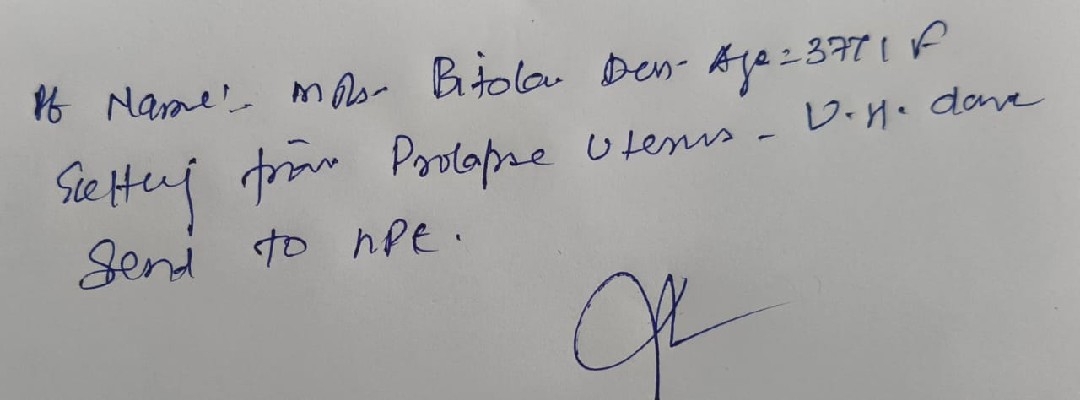 Pt Name:- Mrs- Bitola Den- Age = 37Y| F
Suffering from Prolapse Uterus - V.H. done
Send to HPE.